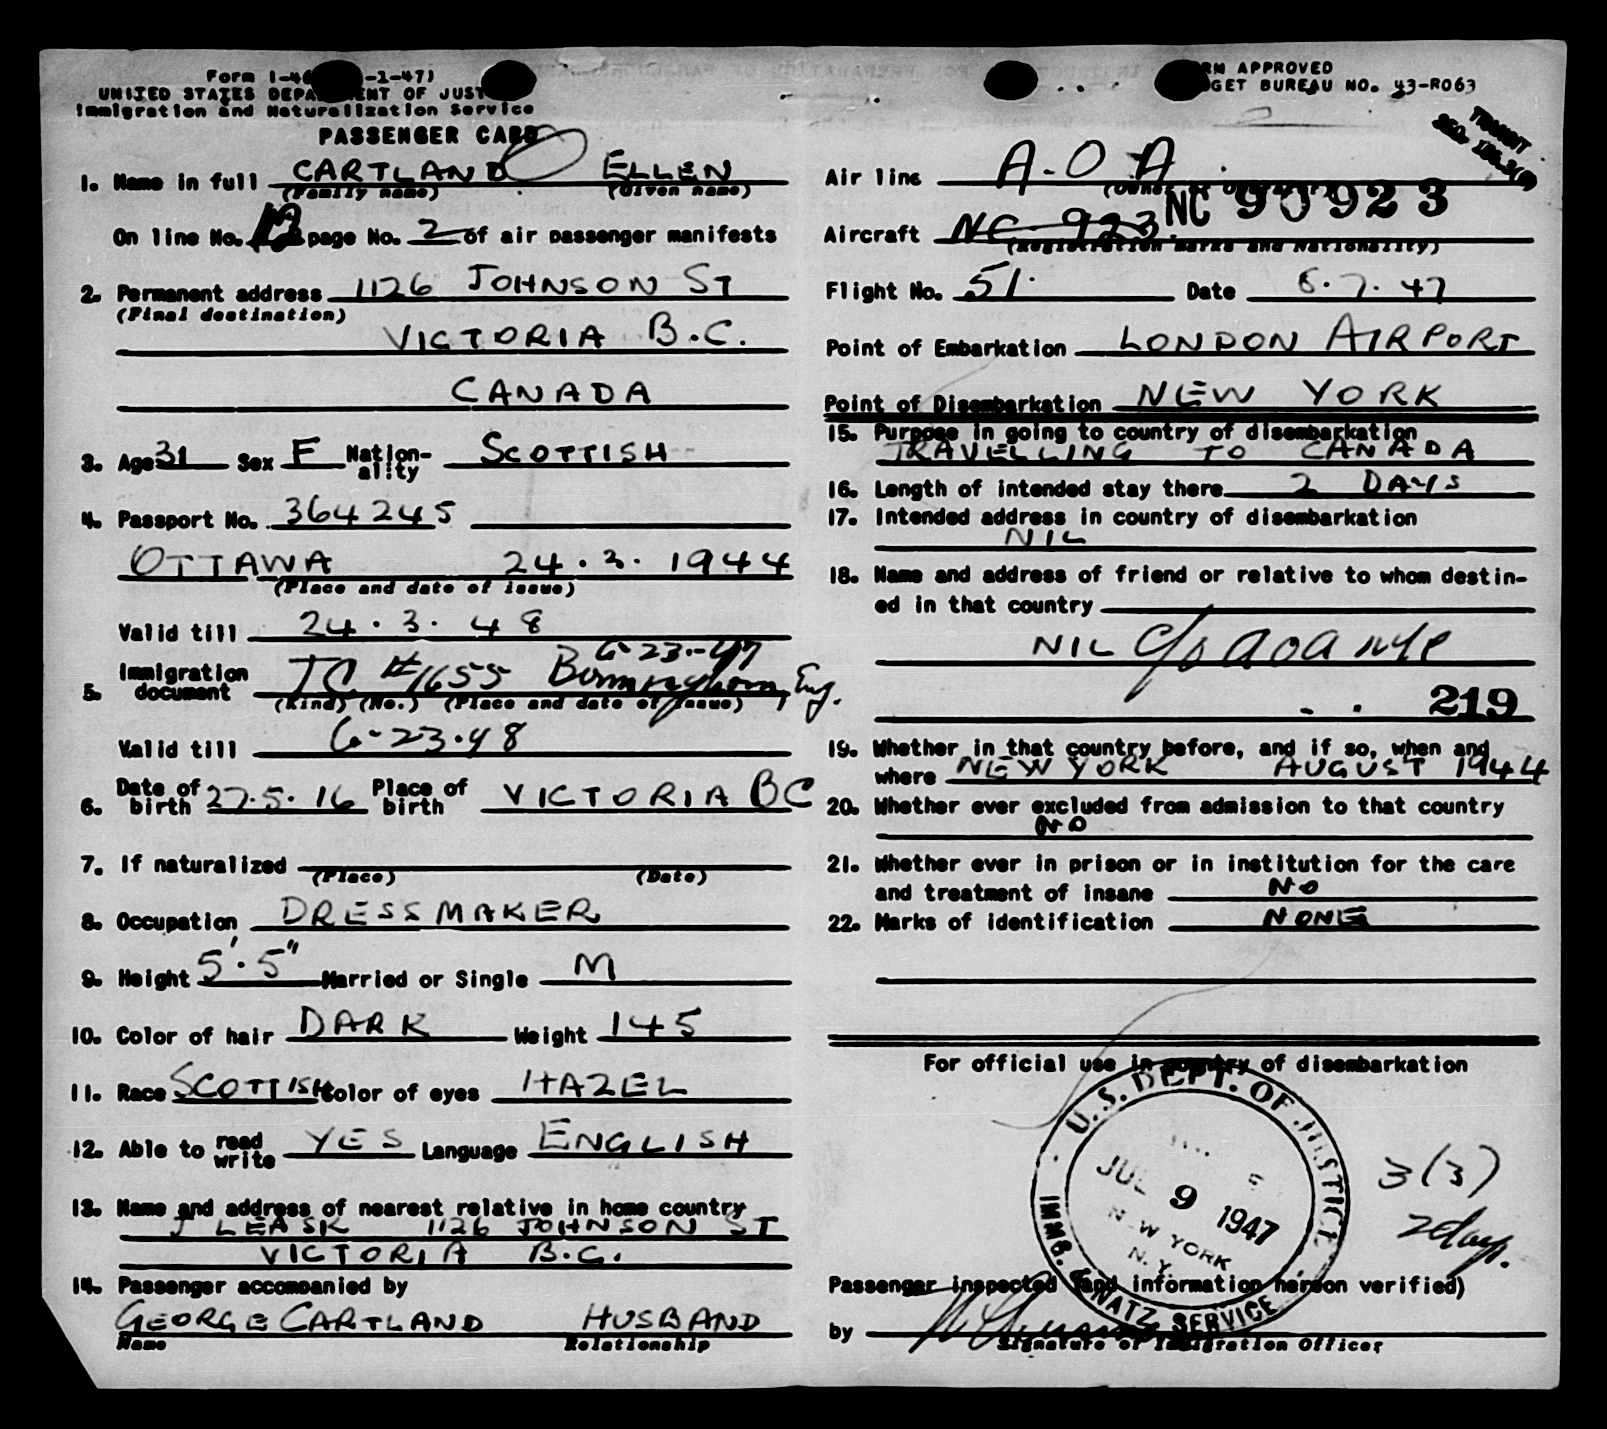 Form I-4 -1-47)
UNITED STATES DEPA ENT OF JUST
Immigration and Naturalization Service
PASSENGER CARD
1. Name in full CARTLAND ELLEN
(Family name) (Given name)
On line No. page No. 2 of air passenger manifests
2. Permanent address 1126 JOHNSON ST
(Final destination)
VICTORIA B.C.
CANADA
3. Age 31 Sex F Nation-ality SCOTTISH
4. Passport No. 364245
OTTAWA 24.3.1944
(Place and date of issue)
Valid till 24.3.48
6-23-47
5. Immigration document TC #1655 Birmingham, Eng.
(Kind) (No.) (Place and date of issue)
Valid till 6-23-48
6. Date of birth 27.5.16 Place of birth VICTORIA BC
7. If naturalized
(Place) (Date)
8. Occupation DRESSMAKER
9. Height 5'.5" Married or Single M
10. Color of hair DARK Weight 145
11. Race SCOTTISH Color of eyes HAZEL
12. Able to read write YES Language ENGLISH
13. Name and address of nearest relative in home country
J LEASK 1126 JOHNSON ST
VICTORIA B.C.
14. Passenger accompanied by
GEORGE CARTLAND HUSBAND
Name Relationship
RM APPROVED
GET BUREAU NO. 43-R063
TRANSIT
SEC.
Air line A.O.A
(Owner or operator)
NC 90923
Aircraft NC-923.
(Registration marks and nationality)
Flight No. 51. Date 8.7.47
Point of Embarkation LONDON AIRPORT
Point of Disembarkation NEW YORK
15. Purpose in going to country of disembarkation
TRAVELLING TO CANADA
16. Length of intended stay there 2 DAYS
17. Intended address in country of disembarkation
NIL
18. Name and address of friend or relative to whom destin-
ed in that country
NIL c/o AOA NYC
219
19. Whether in that country before, and if so, when and
where NEW YORK AUGUST 1944
20. Whether ever excluded from admission to that country
NO
21. Whether ever in prison or in institution for the care
and treatment of insane NO
22. Marks of identification NONE
For official use in country of disembarkation
U.S. DEPT. OF JUSTICE
JUL 9 1947
NEW YORK
N.Y.
IMMG. & NATZ. SERVICE
3(3)
2 days.
Passenger inspected (and information hereon verified)
by
Signature of Immigration Officer